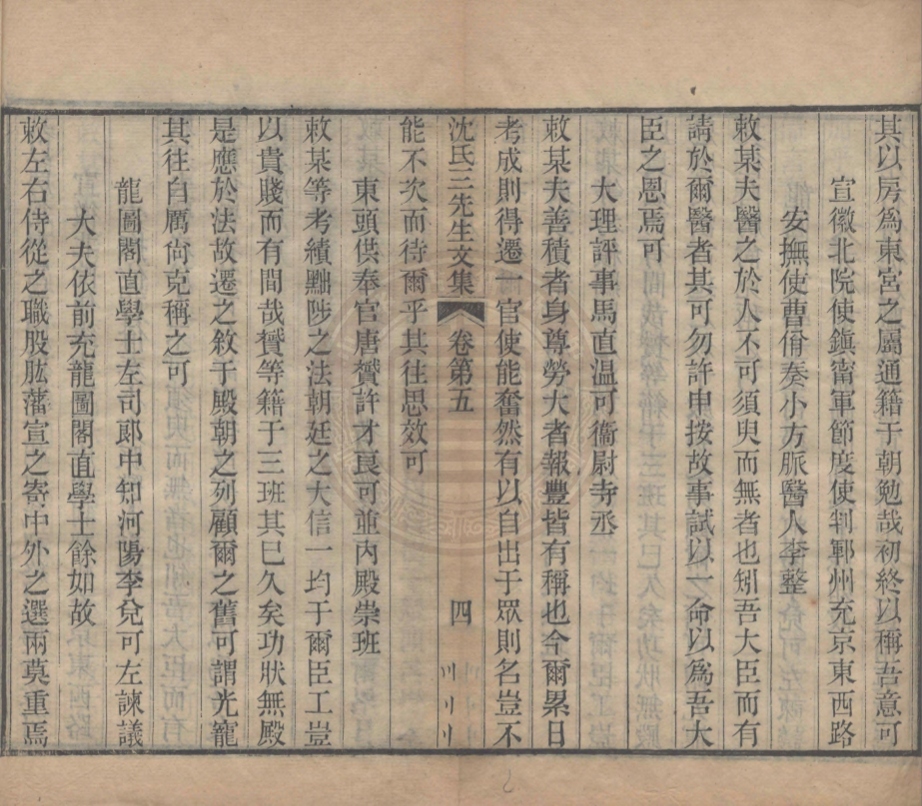 其以房爲東宮之屬通籍于朝勉哉初終以稱吾意可
宣徽北院使鎭甯軍節度使判鄆州充京東西路
安撫使曹佾奏小方脈醫人李整
敕某夫醫之於人不可須臾而無者也矧吾大臣而有
請於爾醫者其可勿許申按故事試以一命以爲吾大
臣之恩焉可
大理評事馬直温可衞尉寺丞
敕某夫善積者身尊勞大者報豐皆有稱也今爾累日
考成則得遷一官使能奮然有以自出于眾則名豈不
沈氏三先生文集 卷第五 四
能不次而待爾乎其往思效可
東頭供奉官唐贇許才良可並內殿崇班
敕某等考績黜陟之法朝廷之大信一均于爾臣工豈
以貴賤而有間哉贇等籍于三班其巳久矣功狀無殿
是應於法故遷之敘于殿朝之列顧爾之舊可謂光寵
其往自厲尙克稱之可
龍圖閣直學士左司郎中知河陽李兌可左諫議
大夫依前充龍圖閣直學士餘如故
敕左右侍從之職股肱藩宣之寄中外之選兩莫重焉